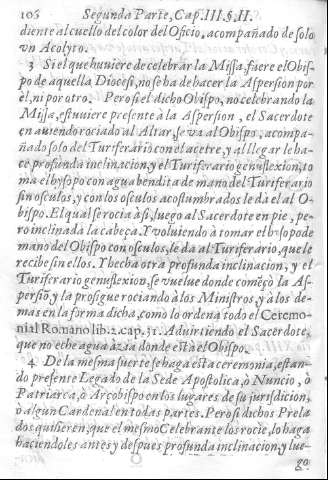 106 Segunda Parte, Cap. III. §. II.
diente al cuello del color del Oficio, acompañado de solo
vn Acolyto.
3 Si el que huuiere de celebrar la Missa, fuere el Obis-
po de aquella Diocesi, no se ha de hacer la Aspersion por
èl, ni por otro. Pero si el dicho Obispo, no celebrando la
Missa, estuuiere presente à la Aspersion, el Sacerdote
en auiendo rociado al Altar, se va al Obispo, acompa-
ñado solo del Turiferario con el acetre, y al llegar le ha-
ce profunda inclinacion, y el Turiferario genuflexion, to
ma el hysopo con agua bendita de mano del Turiferario
sin osculos, y con los osculos acostumbrados le dà el al O-
bispo. El qual se rocia à si, luego al Sacerdote en pie, pe-
ro inclinada la cabeça. Y voluiendo à tomar el hysopo de
mano del Obispo con osculos, le da al Turiferario, que le
recibe sin ellos. Y hecha otra profunda inclinacion, y el
Turiferario genuflexion, se vuelue donde comẽçò la As-
persiõ, y la prosigue rociando à los Ministros, y à los de-
mas en la forma dicha, como lo ordena todo el Ceremo-
nial Romano lib. 2. cap. 31. Aduirtiendo el Sacerdote,
que no eche agua àzia donde està el Obispo.
4 De la mesma suerte se haga esta ceremonia, estan-
do presente Legado de la Sede Apostolica, ò Nuncio, ò
Patriarca, ò Arçobispo en los lugares de su jurisdicion,
ò algun Cardenal en todas partes. Pero si dichos Prela
dos quisieren, que el mesmo Celebrante los rocie, lo haga
haciendoles antes y despues profunda inclinacion, y lue-
go